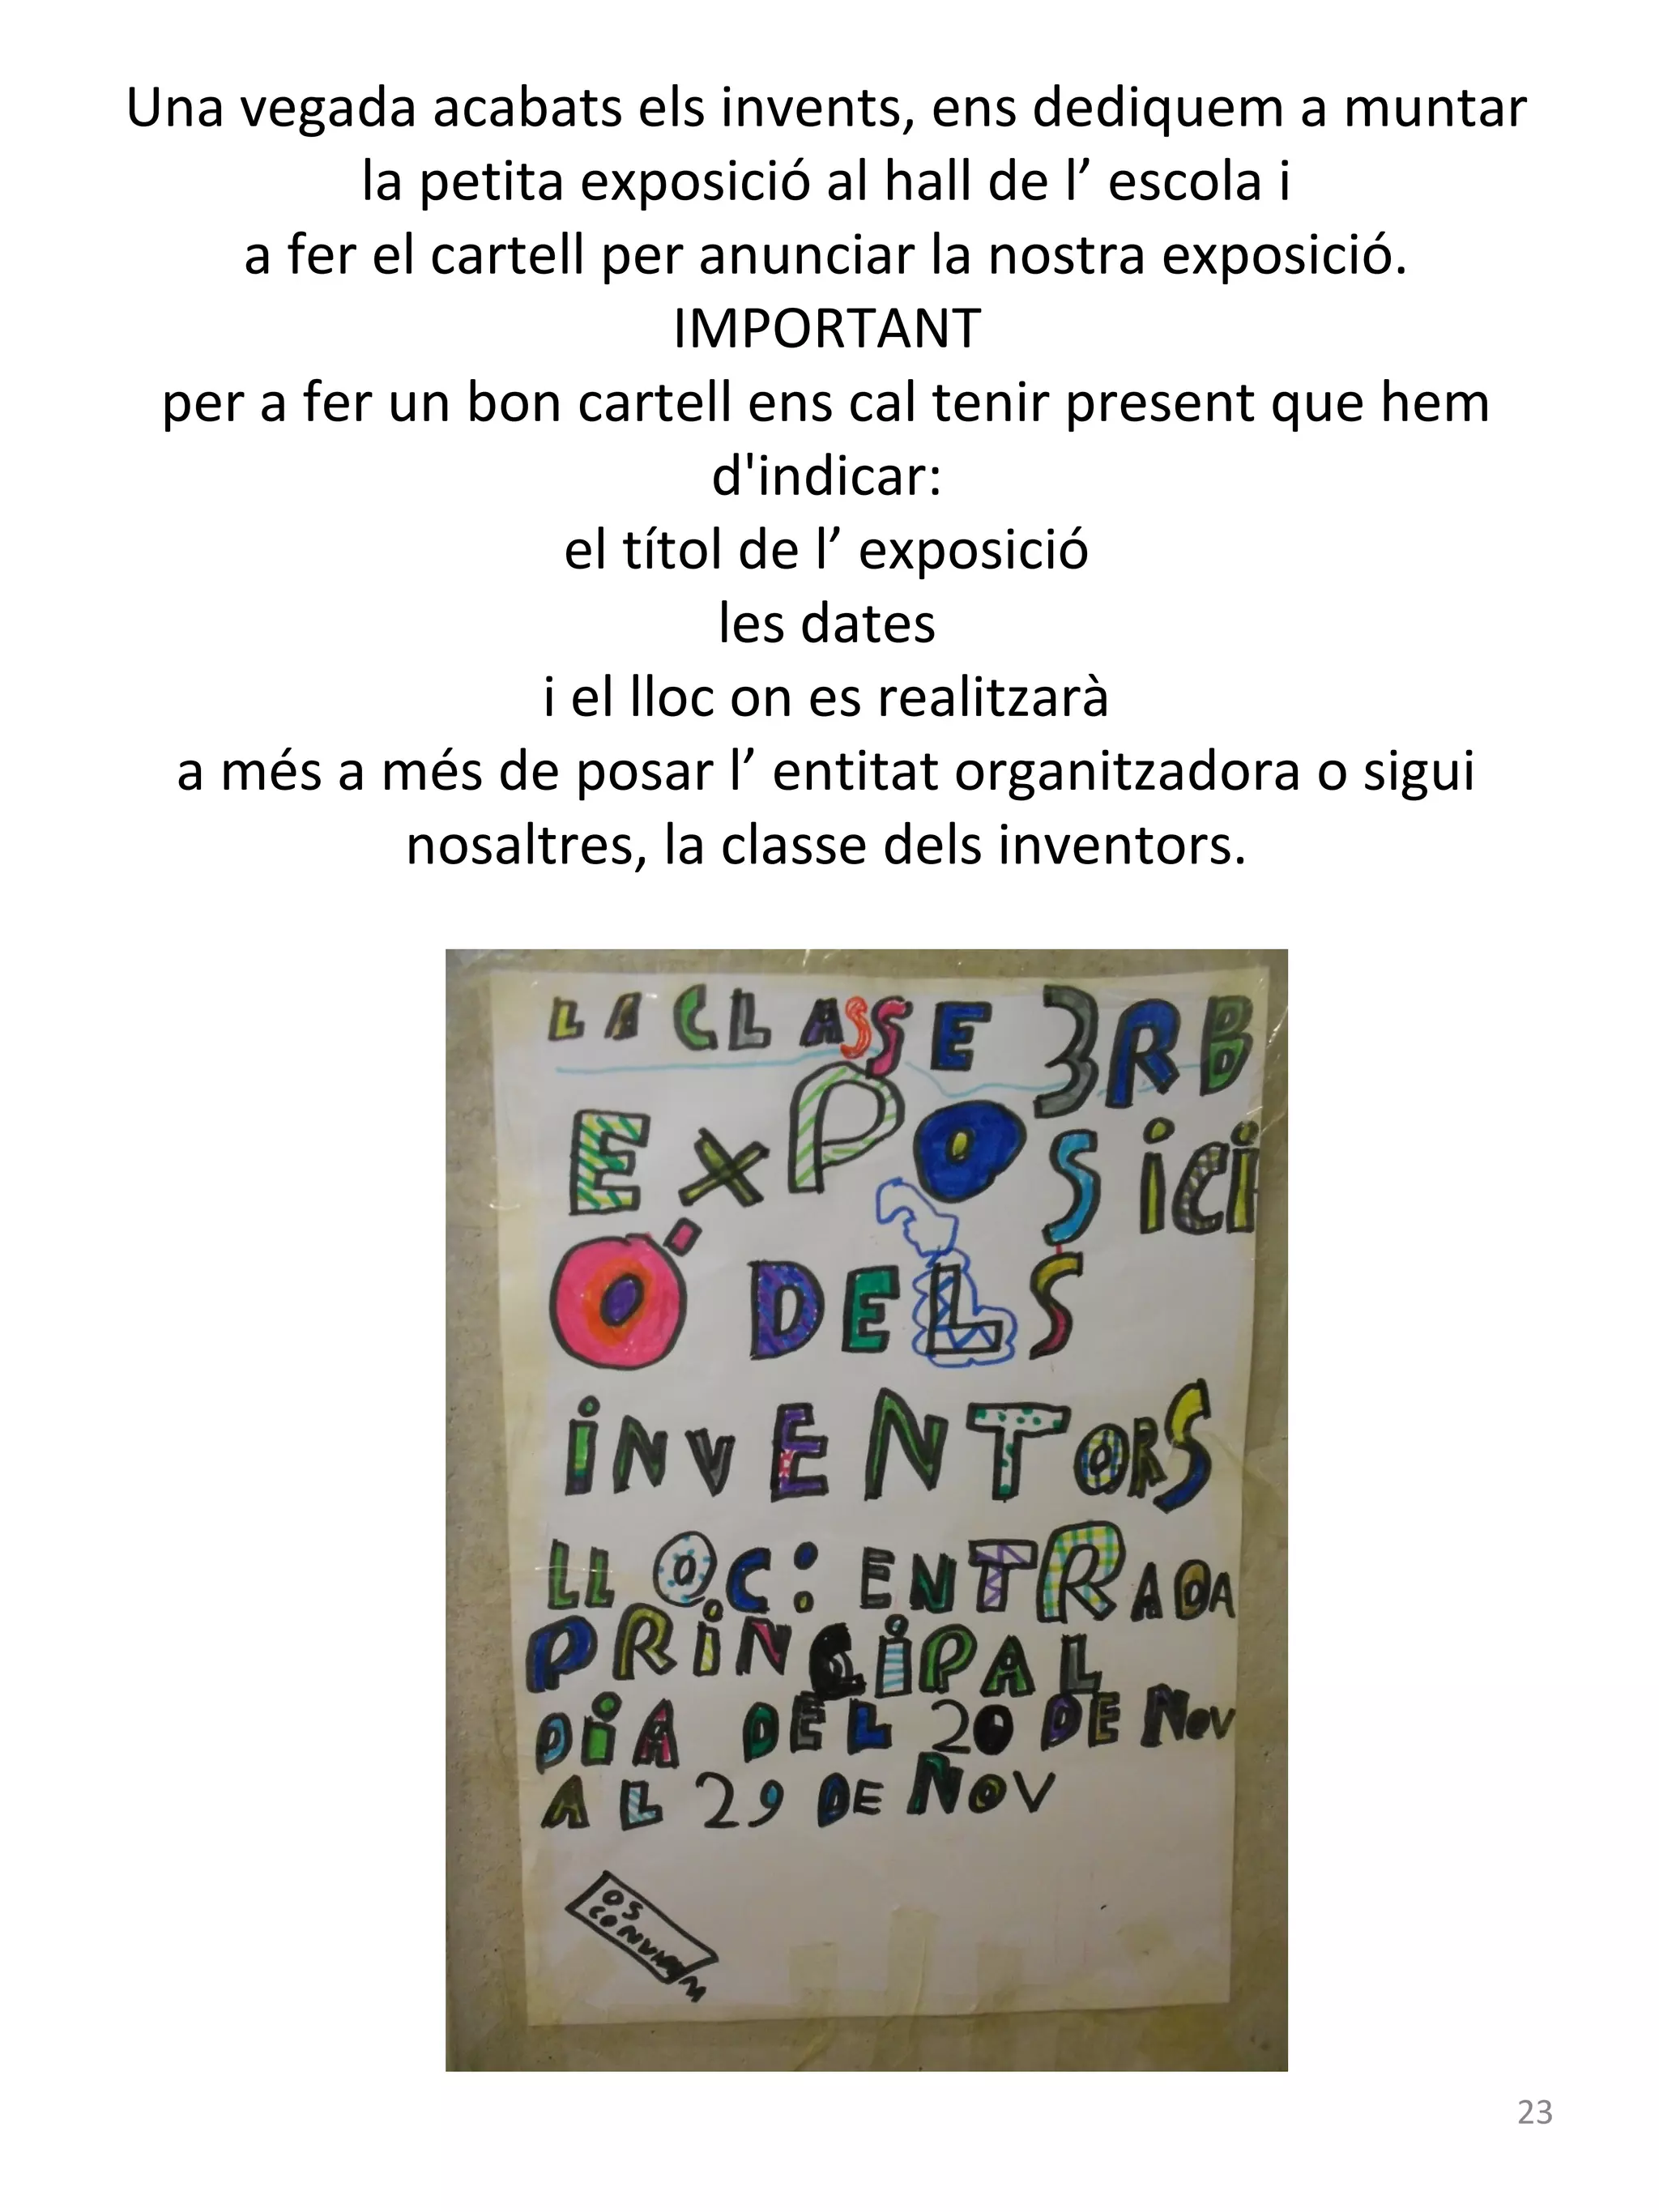 Una vegada acabats els invents, ens dediquem a muntar
la petita exposició al hall de l’ escola i
a fer el cartell per anunciar la nostra exposició.
IMPORTANT
per a fer un bon cartell ens cal tenir present que hem
d'indicar:
el títol de l’ exposició
les dates
i el lloc on es realitzarà
a més a més de posar l’ entitat organitzadora o sigui
nosaltres, la classe dels inventors.
LA CLASSE 3R B
EXPOSiCi
Ó DELS
iNVENTORS
LLOC: ENTRADA
PRiNCiPAL
DiA DEL 20 DE NOV
AL 29 DE NOV
OS
CONVIDEM
23